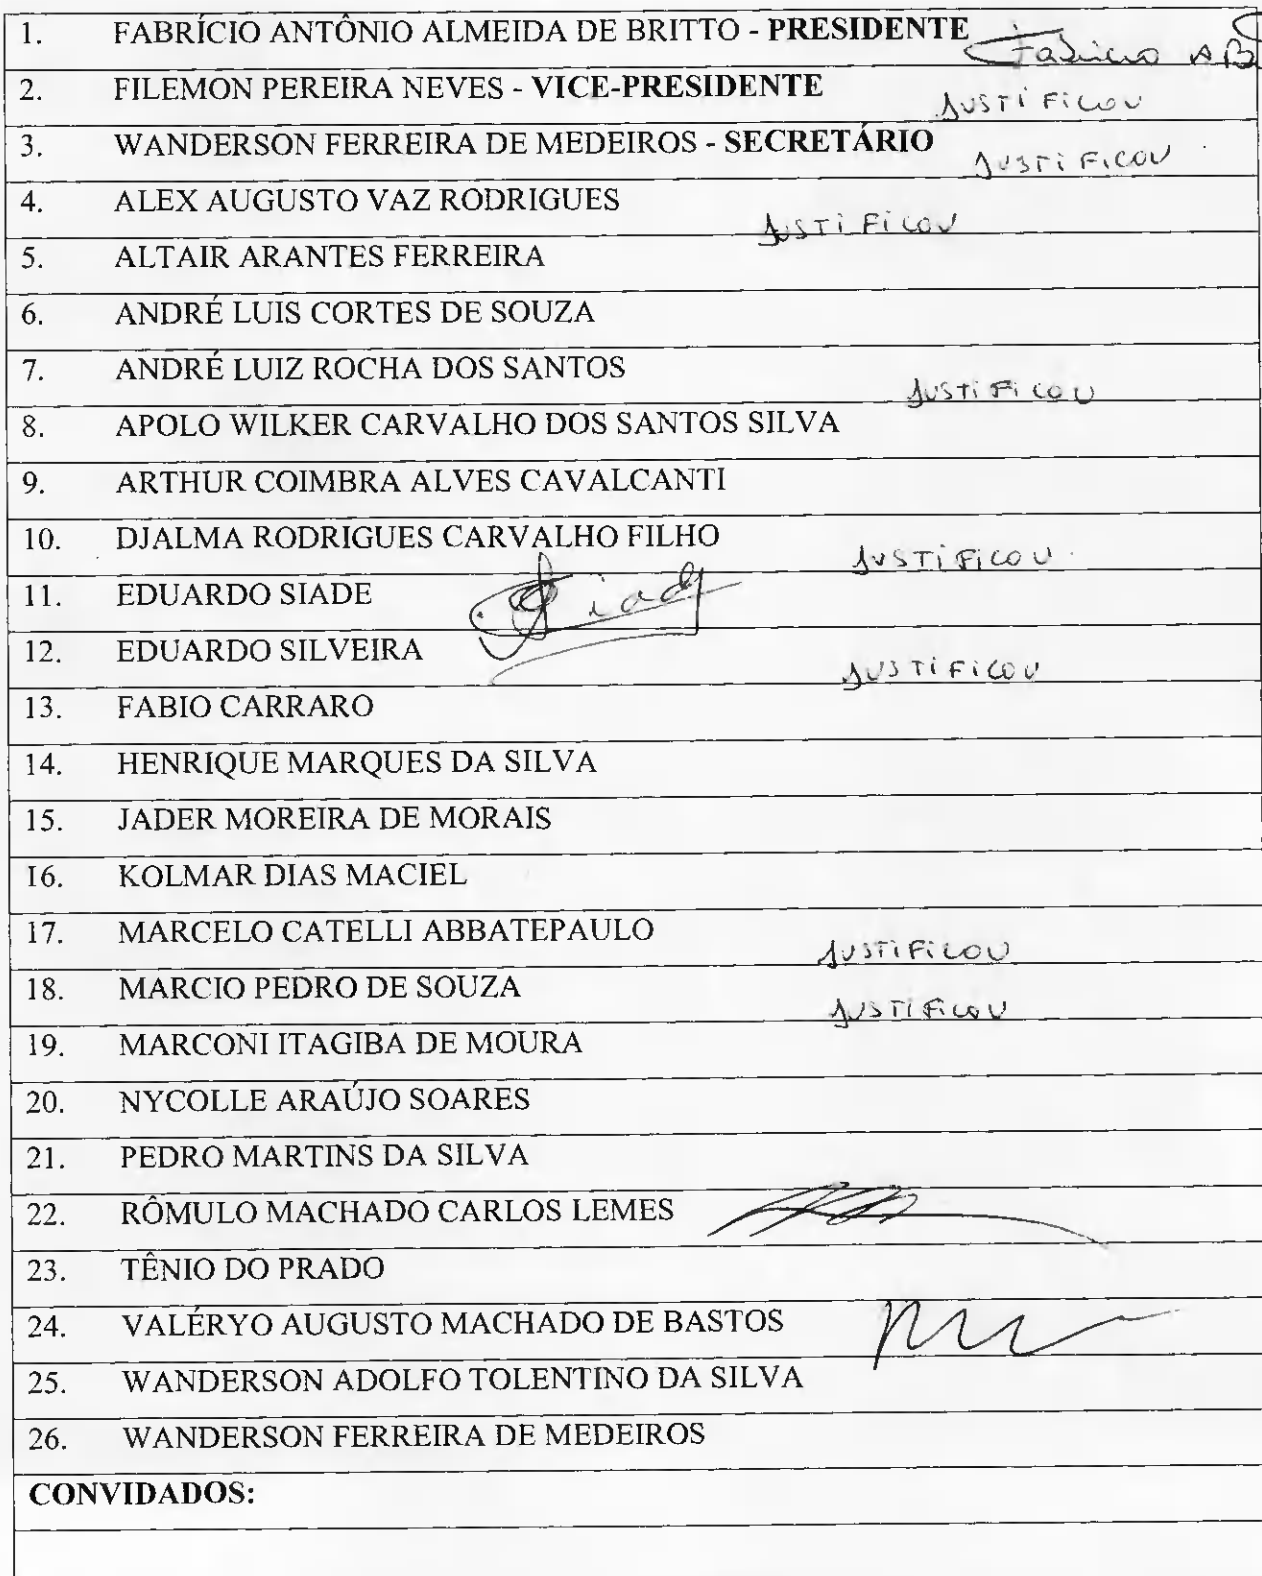 1. FABRÍCIO ANTÔNIO ALMEIDA DE BRITTO - PRESIDENTE Fabricio AB
2. FILEMON PEREIRA NEVES - VICE-PRESIDENTE JUSTIFICOU
3. WANDERSON FERREIRA DE MEDEIROS - SECRETÁRIO JUSTIFICOU
4. ALEX AUGUSTO VAZ RODRIGUES JUSTIFICOU
5. ALTAIR ARANTES FERREIRA
6. ANDRÉ LUIS CORTES DE SOUZA
7. ANDRÉ LUIZ ROCHA DOS SANTOS JUSTIFICOU
8. APOLO WILKER CARVALHO DOS SANTOS SILVA
9. ARTHUR COIMBRA ALVES CAVALCANTI
10. DJALMA RODRIGUES CARVALHO FILHO JUSTIFICOU
11. EDUARDO SIADE Siade
12. EDUARDO SILVEIRA JUSTIFICOU
13. FABIO CARRARO
14. HENRIQUE MARQUES DA SILVA
15. JADER MOREIRA DE MORAIS
16. KOLMAR DIAS MACIEL
17. MARCELO CATELLI ABBATEPAULO JUSTIFICOU
18. MARCIO PEDRO DE SOUZA JUSTIFICOU
19. MARCONI ITAGIBA DE MOURA
20. NYCOLLE ARAÚJO SOARES
21. PEDRO MARTINS DA SILVA
22. RÔMULO MACHADO CARLOS LEMES
23. TÊNIO DO PRADO
24. VALÉRYO AUGUSTO MACHADO DE BASTOS
25. WANDERSON ADOLFO TOLENTINO DA SILVA
26. WANDERSON FERREIRA DE MEDEIROS
CONVIDADOS: